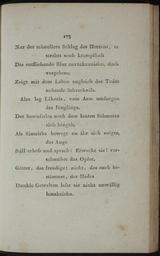 175
Nur der schnellere Schlag des Herzens, es
strebet noch krampfhaft
Das entfliehende Blut zurückzuziehn, doch
vergebens;
Zeigt mit dem Leben zugleich des Todes
nahende Schrecknis.
Also lag Likoris, vom Arm umfangen
des Jünglings.
Der bewusstlos noch dem lauten Schmerze
sich hingab,
Als Simaitha bewegt zu ihr sich neiget,
das Auge
Still erhebt und spricht: Erwacht sie!
das Opfer,
Götter, das freudige! nicht, das euch be-
stimmte, der Hades
Dunkle Gewalten lasst sie nicht unwillig
hinabziehn.